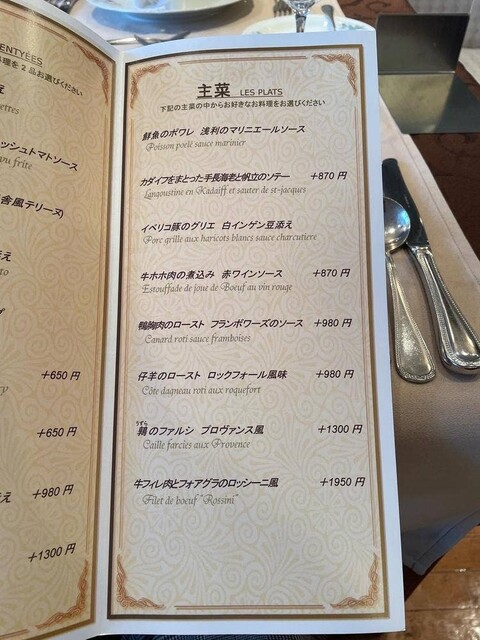 ENTYÉES
料理を 2 品お選びください
え
ettes
ッシュトマトソース
ou frite
舎風テリーヌ)
添え
to
＋650 円
＋650 円
え ＋980 円
＋1300 円
主菜 LES PLATS
下記の主菜の中からお好きなお料理をお選びください
鮮魚のポワレ 浅利のマリニエールソース
Poisson poêlé sauce marinier
カダイフをまとった手長海老と帆立のソテー ＋870 円
Langoustine en Kadaiff et sauter de st-jacques
イベリコ豚のグリエ 白インゲン豆添え
Porc grille aux haricots blancs sauce charcutiere
牛ホホ肉の煮込み 赤ワインソース ＋870 円
Estouffade de joue de Boeuf au vin rouge
鴨胸肉のロースト フランボワーズのソース ＋980 円
Canard roti sauce framboises
仔羊のロースト ロックフォール風味 ＋980 円
Côte dagneau roti aux roquefort
うずら
鶉のファルシ プロヴァンス風 ＋1300 円
Caille farcies aux Provence
牛フィレ肉とフォアグラのロッシーニ風 ＋1950 円
Filet de boeuf "Rossini"